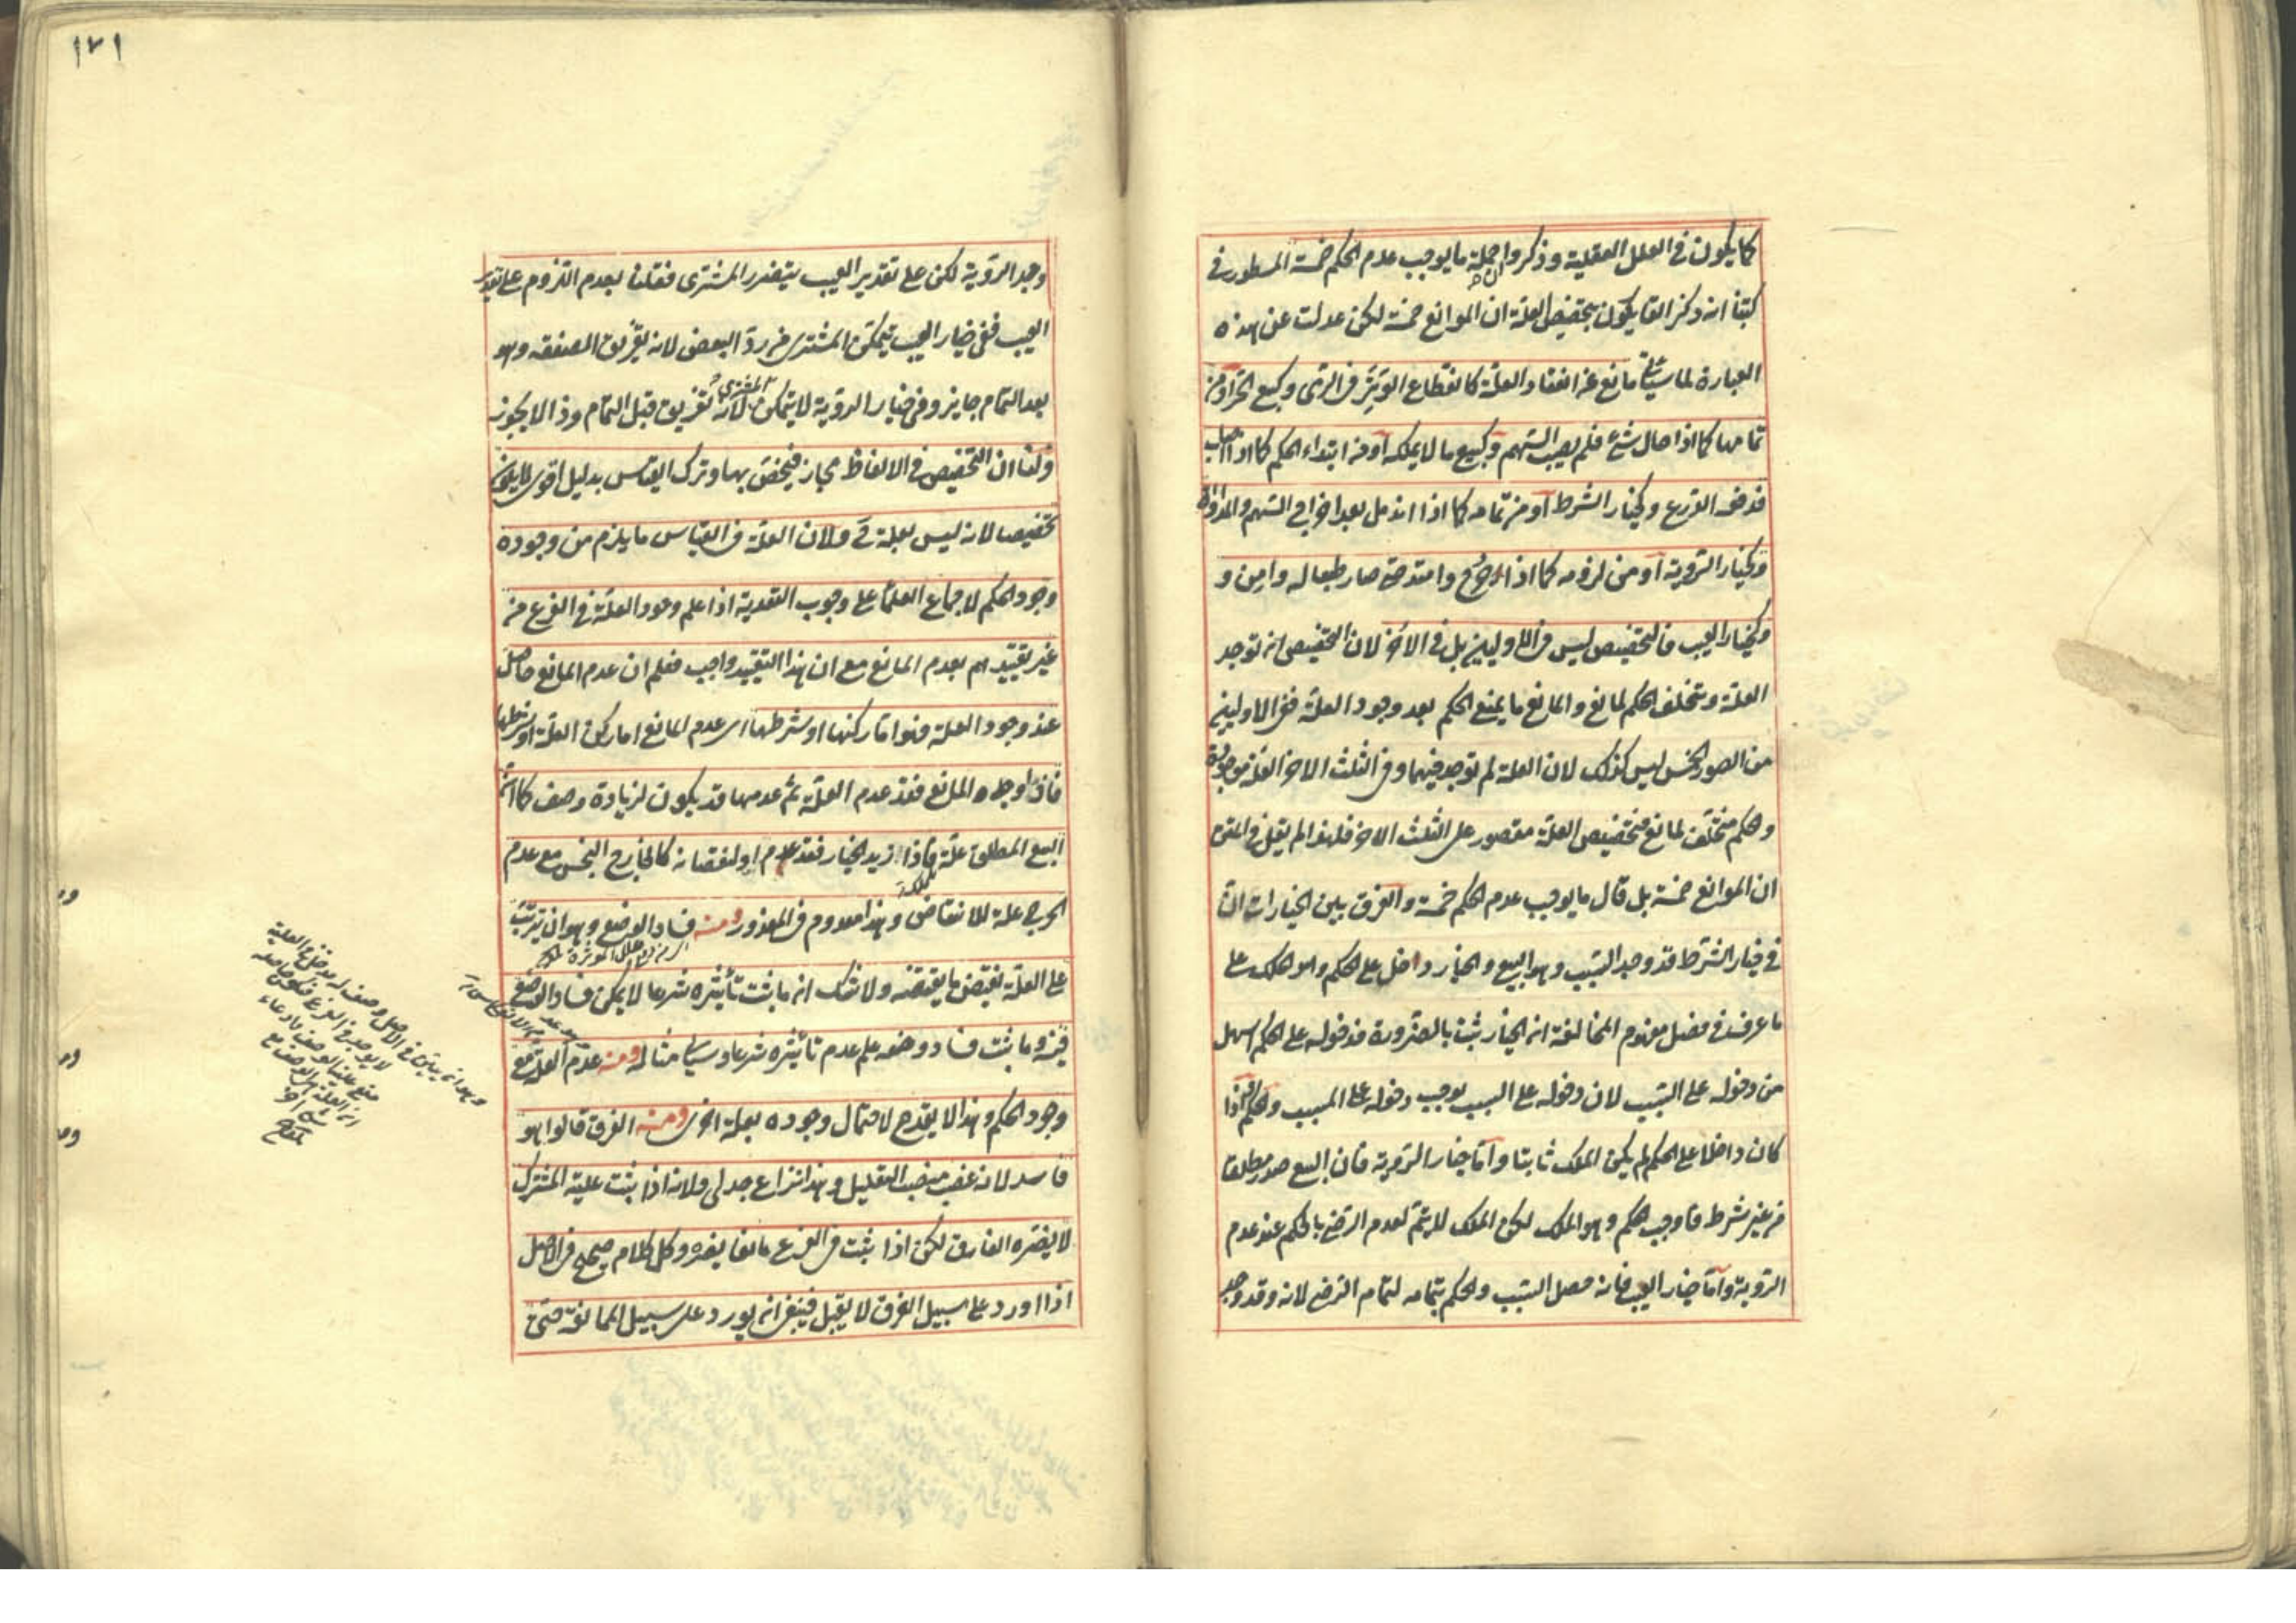 كما يكون في العلل العقلية وذكروا جملة ما يوجب عدم الحكم خمسة المسطور في
كتبنا انه ذكر القايلون بتخصيص العلة ان الموانع خمسة لكن عدلت عن هذه
العبارة لما سيأتي مانع عن انعقاد العلة كانقطاع الوتر في الرمي وكبيع الحر او من
تمامها كما اذا حال شئ فلم يصب السهم وكبيع ما لا يملكه او من ابتداء الحكم كما اذا اصاب
فدفعه الدرع وكخيار الشرط او من تمامه كما اذا اندمل بعد اخراج السهم والمداواة
وكخيار الرؤية او من لزومه كما اذا جرح وامتد حتى صار طبعا له وامن و
كخيار العيب فالتخصيص ليس في الاوليين بل في الاخر لان التخصيص ان توجد
العلة ويتخلف الحكم لمانع والمانع ما يمنع الحكم بعد وجود العلة ففي الاوليين
من الصور الخمس ليس كذلك لان العلة لم توجد فيهما وفي الثلث الاخر العلة موجودة
والحكم متخلف لمانع فتخصيص العلة مقصور على الثلث الاخر فلهذا لم يقل في المتن
ان الموانع خمسة بل قال ما يوجب عدم الحكم خمسة والفرق بين الخيارات ان
في خيار الشرط قد وجد السبب وهو البيع والخيار داخل على الحكم وهو الملك على
ما عرف في فصل مفهوم المخالفة ان الخيار ثبت بالضرورة فدخوله على الحكم اسهل
من دخوله على السبب لان دخوله على السبب يوجب دخوله على المسبب والخيار اذا
كان داخلا على الحكم لم يكن الملك ثابتا واما خيار الرؤية فان البيع صدر مطلقا
من غير شرط فاوجب الحكم وهو الملك لكن الملك لا يتم لعدم الرضى بالحكم عند عدم
الرؤية واما خيار العيب فانه حصل السبب والحكم بتمامه لتمام الرضى لانه وقد وجد
١٧١
وجد الرؤية لكن على تقدير العيب يتضرر المشترى فقلنا بعدم اللزوم على تقدير
العيب ففي خيار العيب يتمكن المشترى من رد البعض لانه تفريق الصفقة وهو
بعد التمام جايز وفي خيار الرؤية لا يتمكن المشترى لانه تفريق قبل التمام وذا لا يجوز
ولنا ان التخصيص في الالفاظ مجاز فيختص بها وترك القياس بدليل اقوى لا يكون
تخصيصا لانه ليس بعلة ح ولان العلة في القياس ما يلزم من وجوده
وجود الحكم لاجماع العلماء على وجوب التعدية اذا علم وجود العلة في الفرع من
غير تقييدهم بعدم المانع مع ان هذا التقييد واجب فعلم ان عدم المانع حاصل
عند وجود العلة فهو اما ركنها او شرطها اى عدم المانع اما ركن العلة او شرطها
فاذا وجد المانع فقد عدم العلة ثم عدمها قد يكون لزيادة وصف كما ان
البيع المطلق علة فاذا زيد الخيار فقد عدم او لنقصانه كالخارج النجس مع عدم
الحرج علة للانتقاض وهذا معدوم في المعذور ومنه فساد الوضع وهو ان يترتب
على العلة نقيض ما يقتضيه ولا شك ان ما ثبت تأثيره شرعا لا يمكن فساد الوضع
فيه وما ثبت فساد وضعه علم عدم تأثيره شرعا وسيأتى مثاله ومنه عدم العلة مع
وجود الحكم وهذا لا يقدح لاحتمال وجوده بعلة اخرى ومنه الفرق قالوا هو
فاسد لانه غصب منصب التعليل وهذا نزاع جدلى ولانه اذا ثبت علية المشترك
لا يضره الفارق لكن اذا ثبت في الفرع مانعا يضره وكل كلام صحيح في الاصل
اذا اورد على سبيل الفرق لا يقبل فينبغى ان يورد على سبيل الممانعة حتى